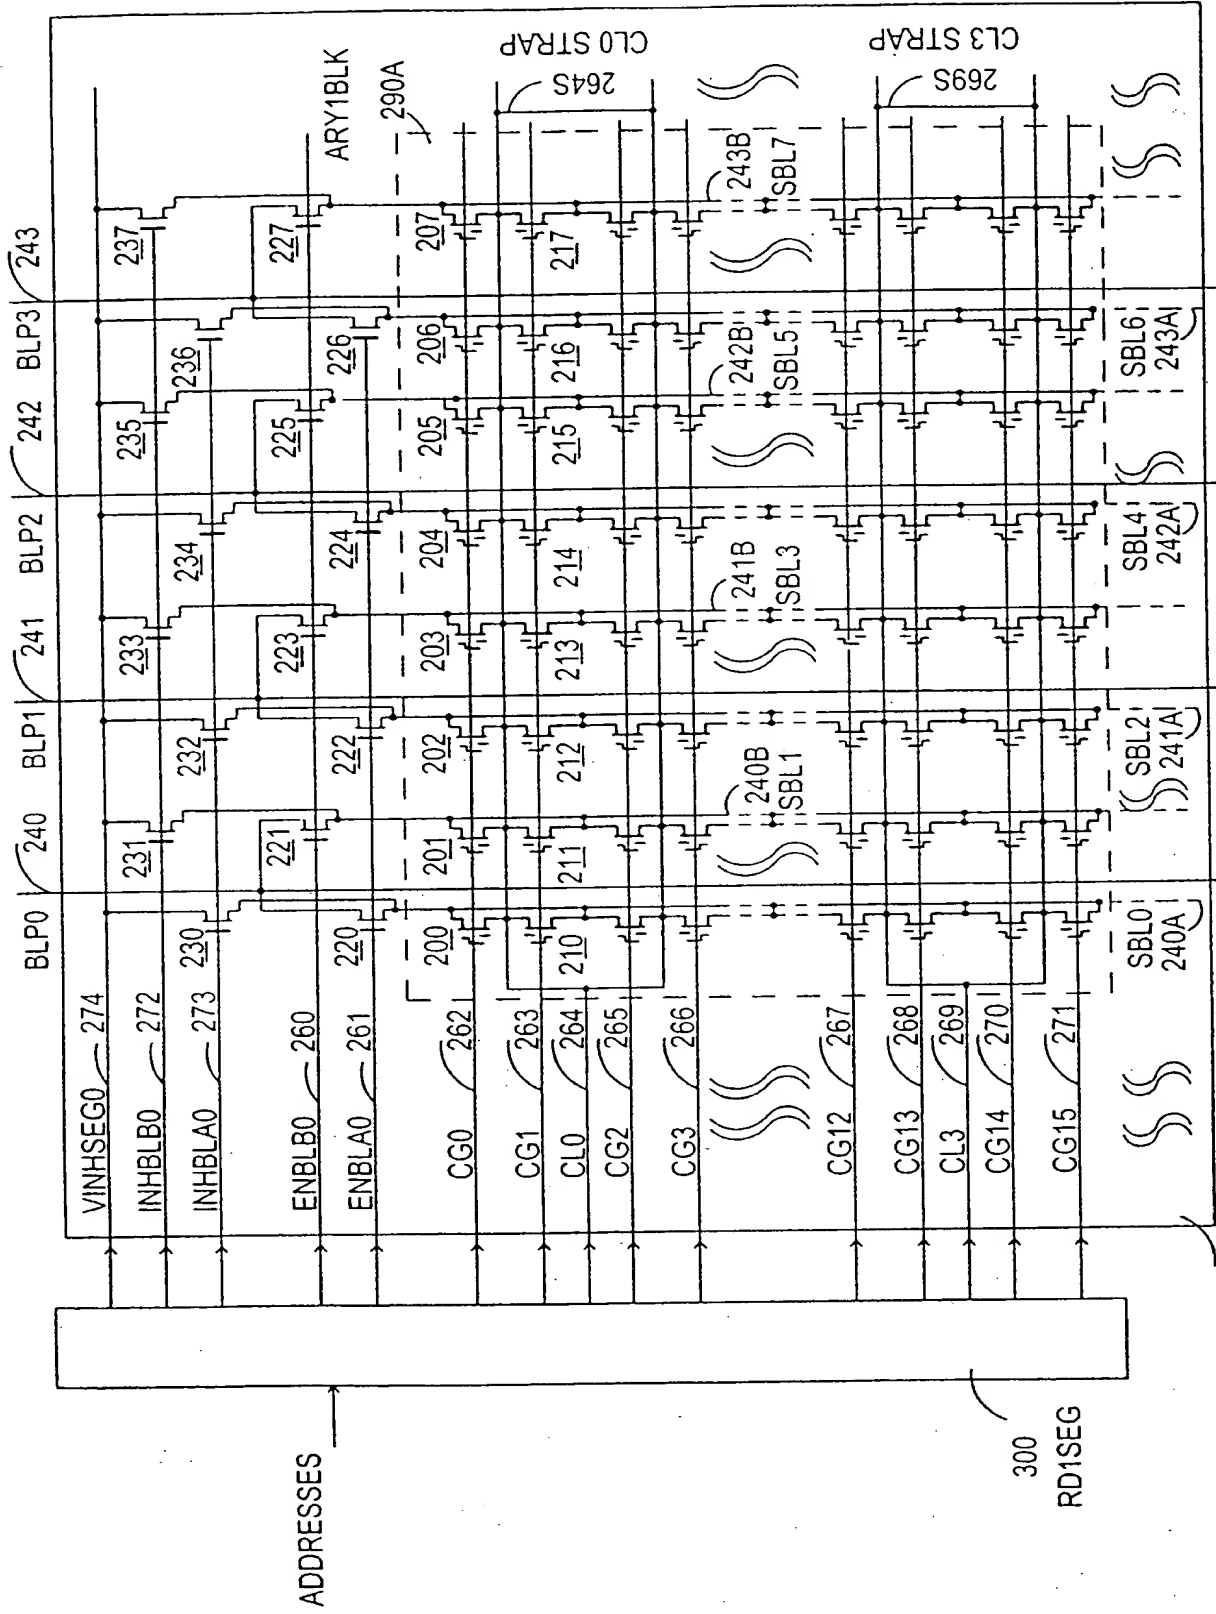 BLP0
240
BLP1
241
BLP2
242
BLP3
243
VINHSEG0
274
INHBLB0
272
INHBLA0
273
ENBLB0
260
ENBLA0
261
CG0
262
CG1
263
CL0
264
CG2
265
CG3
266
CG12
267
CG13
268
CL3
269
CG14
270
CG15
271
230
231
232
233
234
235
236
237
220
221
222
223
224
225
226
227
ARY1BLK
290A
200
201
202
203
204
205
206
207
210
211
212
213
214
215
216
217
264S
CL0 STRAP
240B
SBL1
241B
SBL3
242B
SBL5
243B
SBL7
269S
CL3 STRAP
SBL0
240A
SBL2
241A
SBL4
242A
SBL6
243A
ADDRESSES
300
RD1SEG